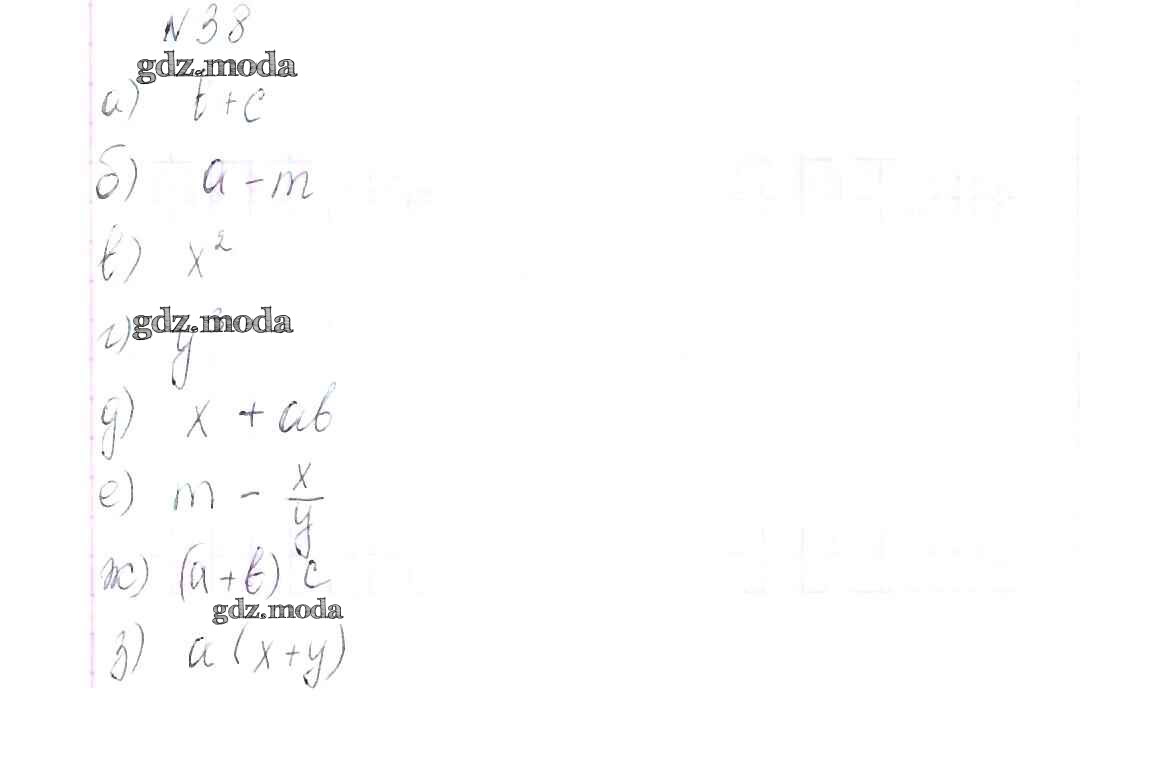 N 38
gdz.moda
а) b+c
б) a-m
в) x²
gdz.moda
г) y
д) x + ab
е) m - x/y
ж) (a+b) c
gdz.moda
з) a (x+y)